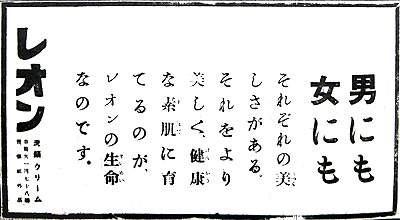 男にも
女にも
それぞれの美
しさがある。
それをより
美しく、健康
な素肌に育
てるのが、
レオンの生命
なのです。
レオン
洗顔クリーム